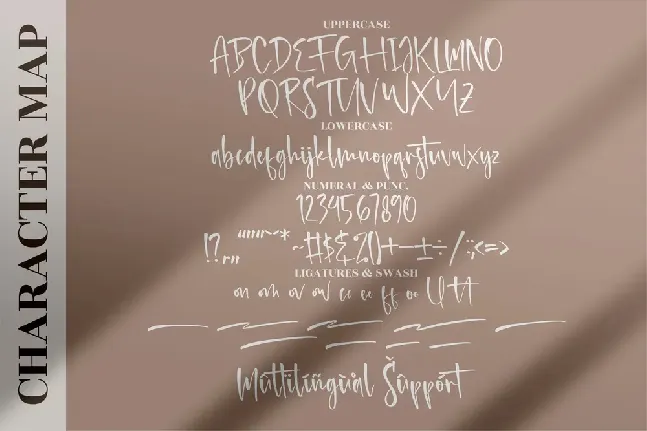 CHARACTER MAP
UPPERCASE
ABCDEFGHIJKLMNO
PQRSTUVWXYZ
LOWERCASE
abcdefghijklmnopqrstuvwxyz
NUMERAL & PUNC.
1234567890
LIGATURES & SWASH
Multilingual Support